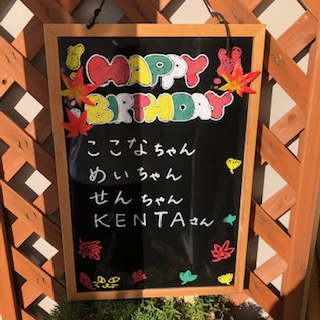 HAPPY
BIRTHDAY
ここなちゃん
めいちゃん
せんちゃん
KENTAさん